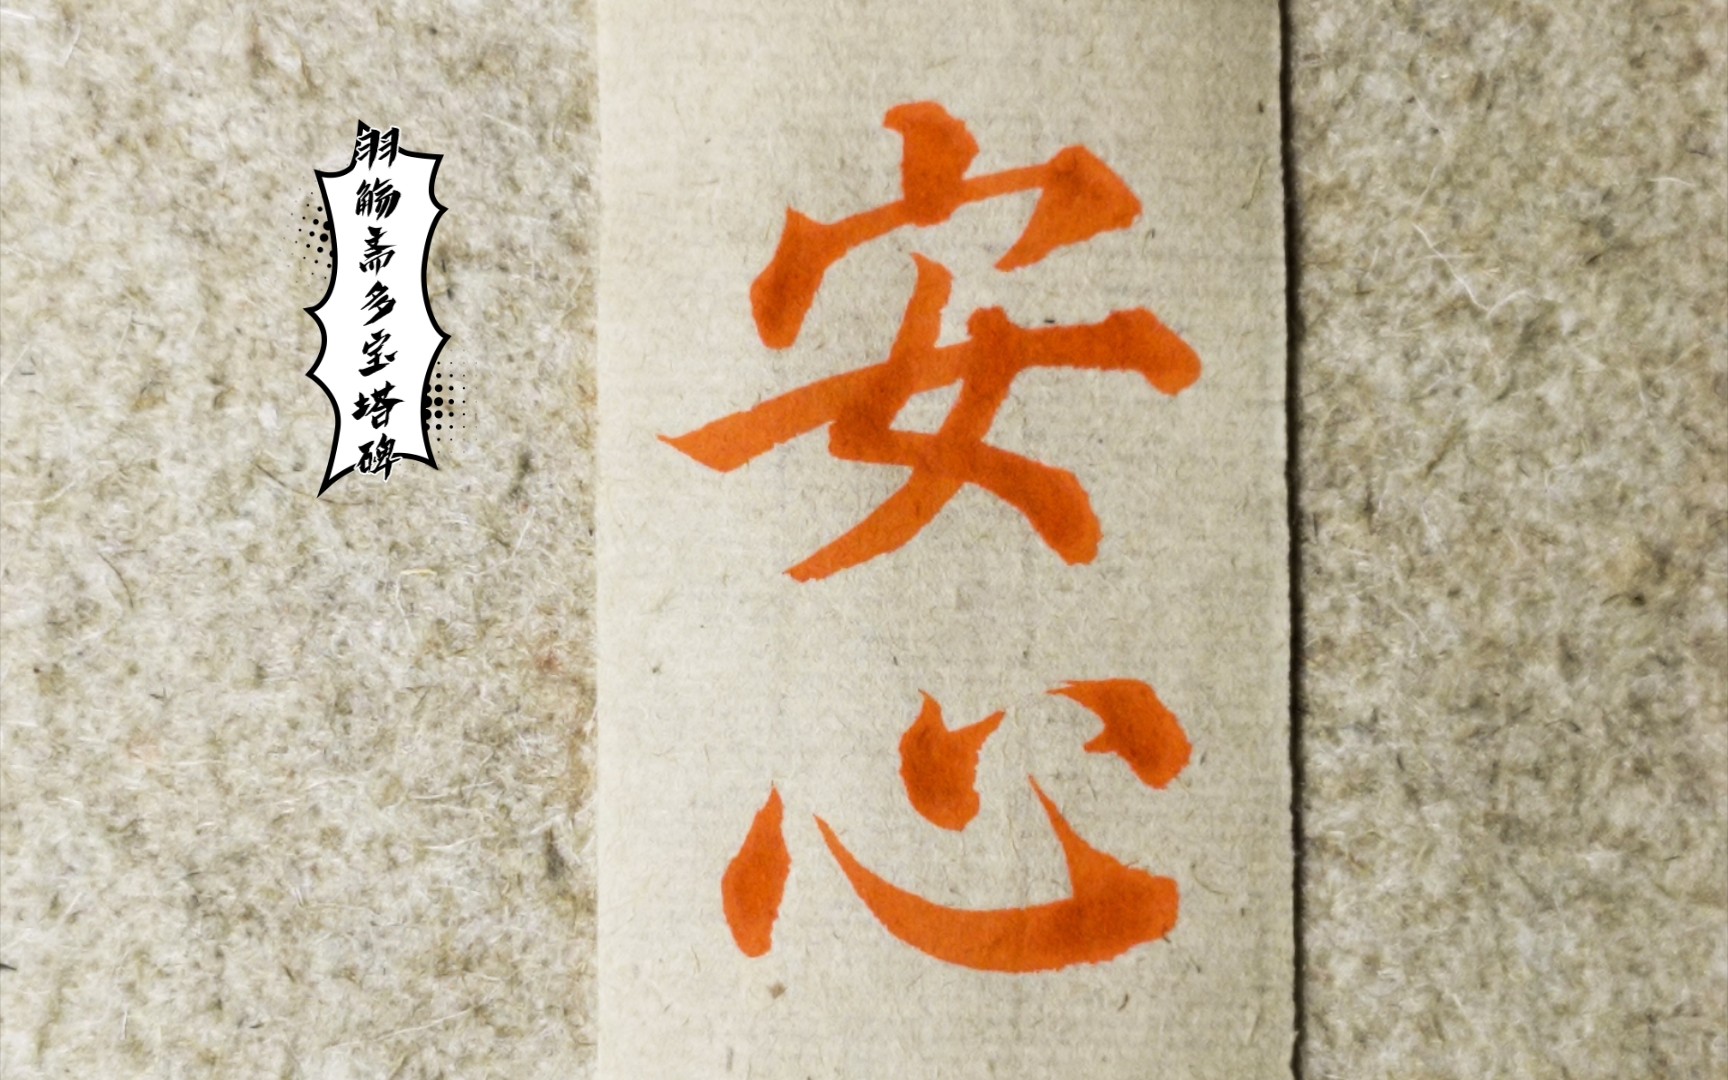 安心
羽觞斋多宝塔碑